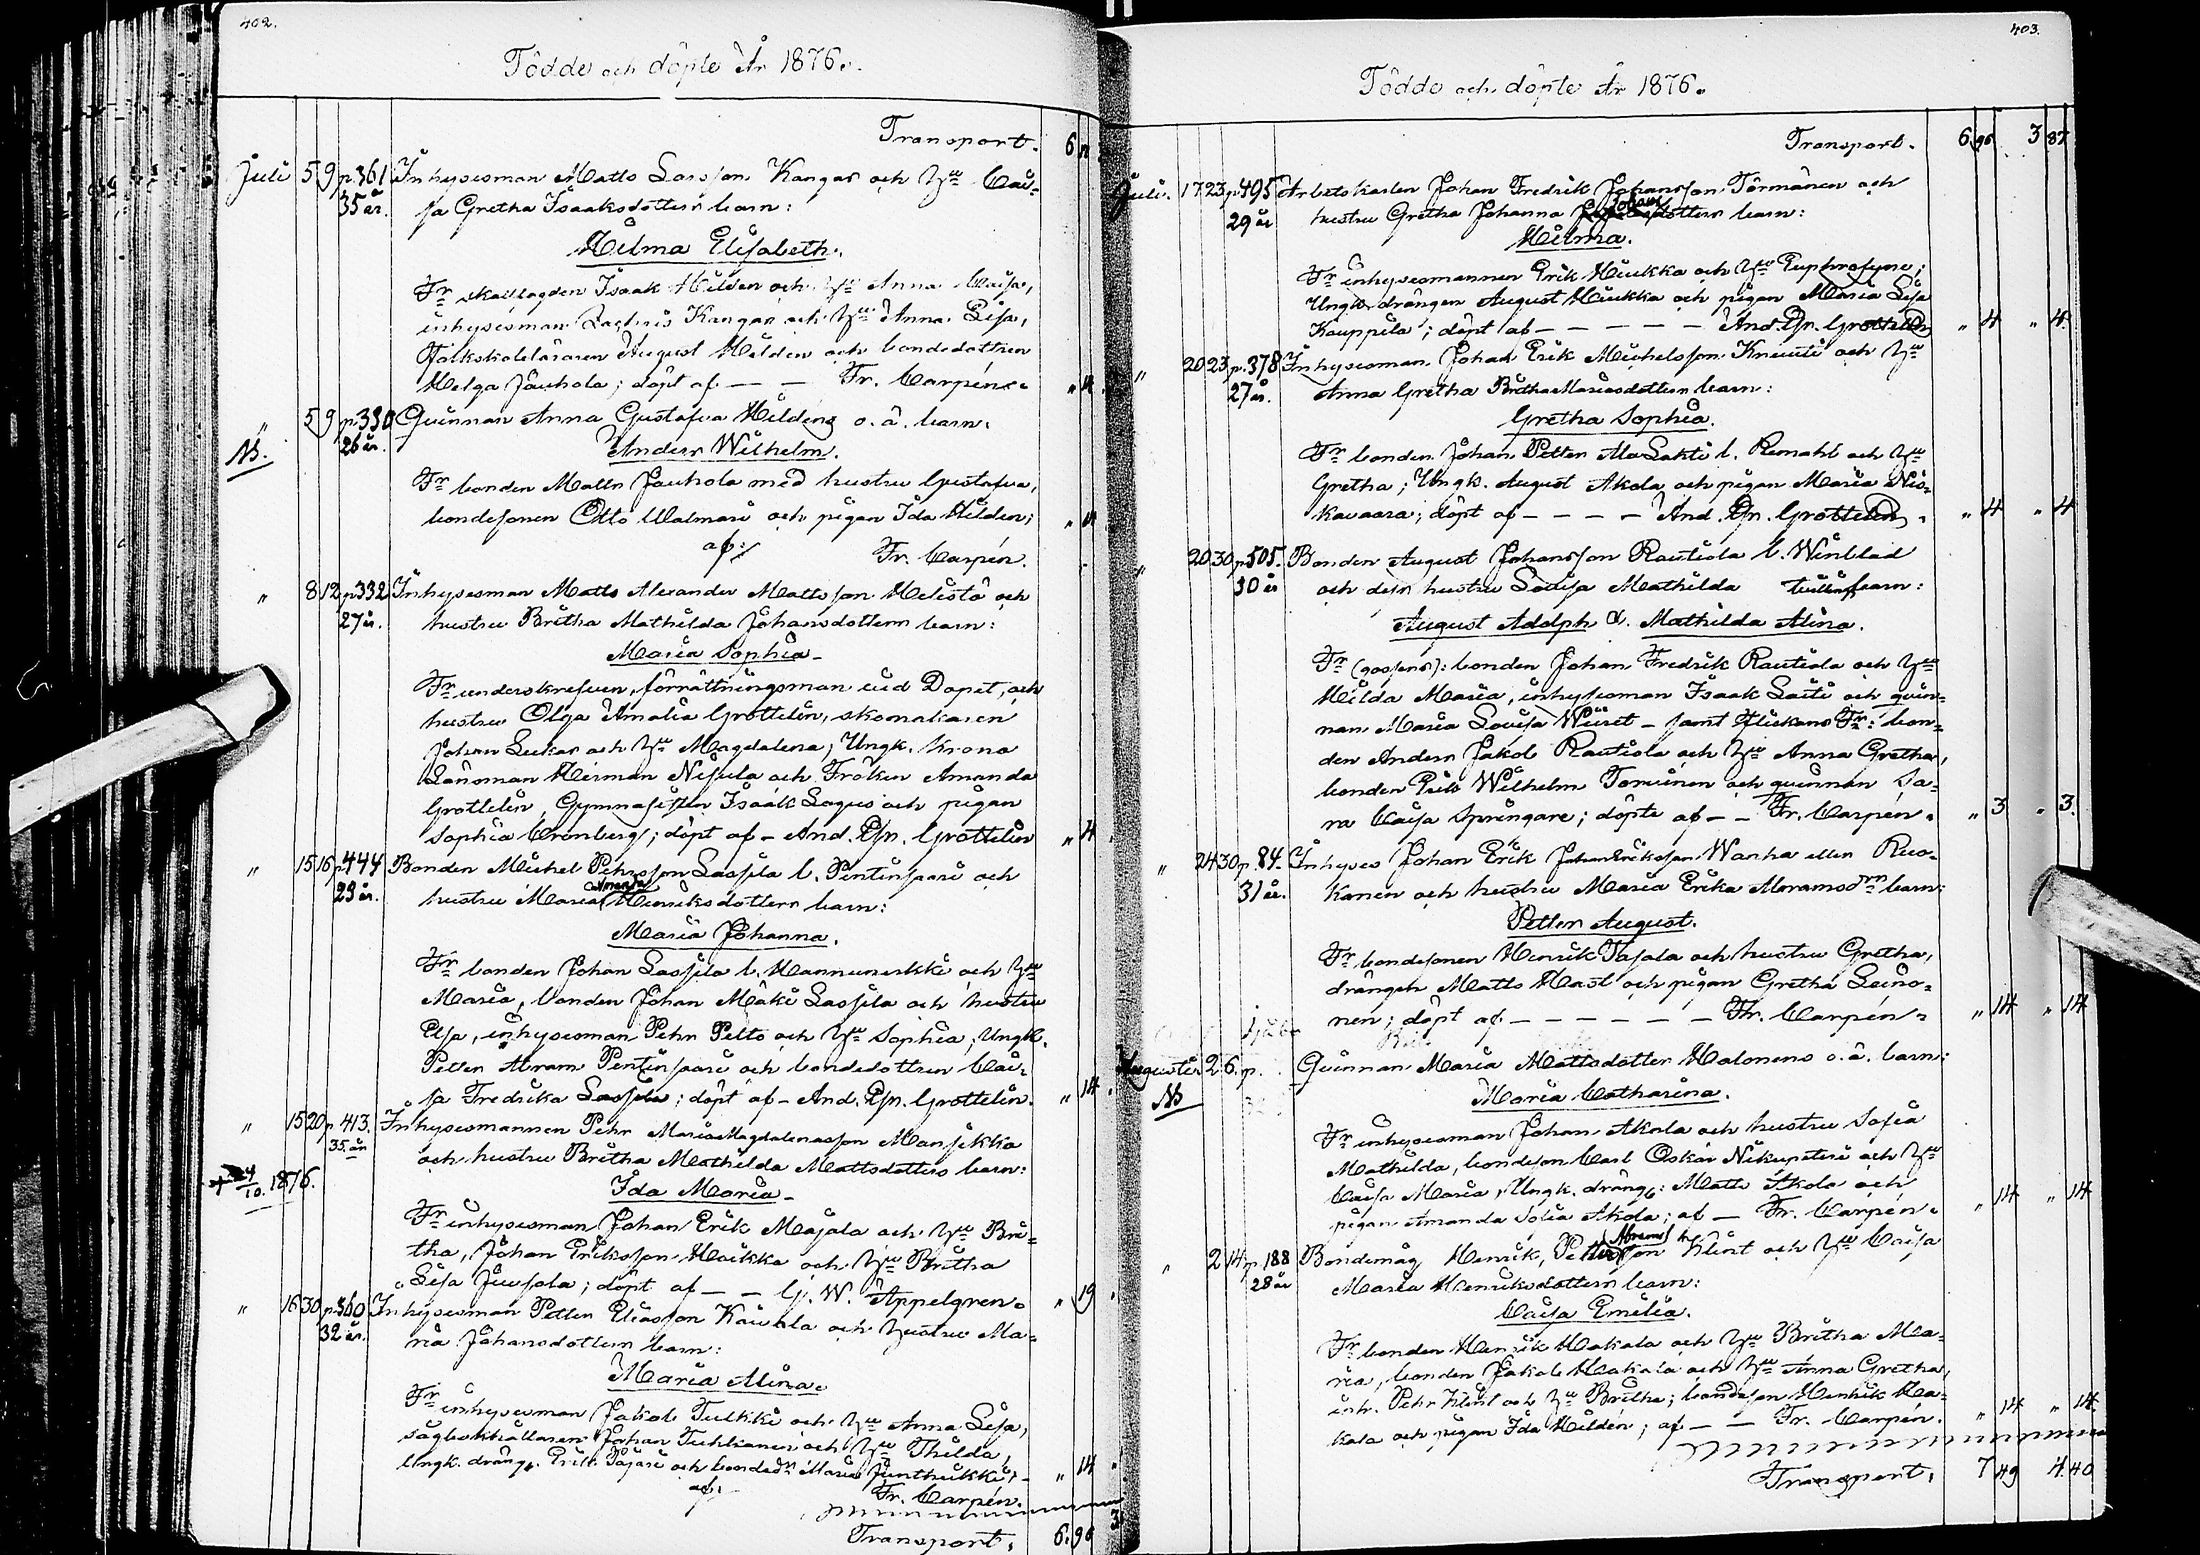 402.
Födde och döpte År 1876.
Transport. 6
Juli 5 9 p.361 Inhysesman Matts Larsson Kangas och Hu Cai-
35 år. sa Gretha Isaaksdotters barn:
Hilma Elisabeth.
Fr skattlagden Isaak Hilden och Hu Anna Caisa,
inhysesman Zachris Kangas och Hu Anna Lisa,
Folkskoleläraren August Hilden och bondedottren
Helga Jauhola; döpt af — — Fr. Carpén.
" 5 9 p.330 Qvinnan Anna Gustafva Hildens o.ä. barn.
NB. 26 år. Anders Wilhelm.
Fr bonden Matts Jauhola med hustru Gustafva,
bondesonen Otto Walmari och pigan Ida Hilden;
af: Fr. Carpén.
" 8 12 p.332 Inhysesman Matts Alexander Mattsson Helistö och
27 år. hustru Britha Mathilda Johansdotters barn:
Maria Sophia
Fr underskrefven, förrättningsman vid Dopet, och
hustru Olga Amalia Grottelin, skomakaren
Johan Leckar och Hu Magdalena, Ungk. Krono
Länsman Herman Nisula och Fröken Amanda
Grottelin, Gymnasisten Isaak Lagus och pigan
Sophia Cronberg; döpt af — And. Gr. Grottelin " 4
" 15 16 p.444 Bonden Michel Pehrsson Lassila l. Pentinsaari och
23 år. hustru Maria Amanda Henriksdotters barn:
Maria Johanna.
Fr bonden Johan Lassila l. Hannunerkki och Hu
Maria, bonden Johan Mäki Lassila och hustru
Elsa, inhysesman Pehr Pelto och Hu Sophia, Ungk.
Petter Abram Pentinsaari och bondedottren Cai-
sa Fredrika Lassila; döpt af — And. Gr. Grottelin. " 14
" 15 20 p.413. Inhysesmannen Pehr Maria Magdalenasson Mansikka
35. år och hustru Britha Mathilda Mattsdotters barn:
+ 24/10. 1876. Ida Maria
Fr inhysesman Johan Erik Majala och Hu Bri-
tha, Johan Eriksson Haikka och Hu Britha
Lisa Jussola; döpt af — — G. W. Appelgren. " 19
" 16 30 p.360 Inhysesman Petter Eliasson Kaurala och hustru Ma-
32 år. ria Johansdotters barn:
Maria Alina.
Fr inhysesman Jakob Tulkki och Hu Anna Lisa,
sågbokhållaren Johan Tuhkanen och Hu Thilda,
Ungk. dräng. Erik Pajari och bonded:n Maria Junttikki;
af: Fr. Carpén. " 14
Transport. 6. 96
403.
Födde och döpte År 1876.
Transport. 6 96 3 87
Juli. 17 23 p.495 Arbetskarlen Johan Fredrik Johansson Törmänen och
29 år hustru Gretha Johanna Johansdotters barn:
Hilma.
Fr inhysesmannen Erik Hiukka och Hu Euphrosyne;
Ungk. drängen August Hiukka och pigan Maria Lisa
Kauppila; döpt af — — — — — And. Gr. Grottelin " 4 " 4.
" 20 23 p.378 Inhysesman Johan Erik Michelsson Knuuti och Hu
27 år. Anna Gretha Britha Mariasdotters barn:
Gretha Sophia.
Fr bonden Johan Petter AlaLahti l. Remahl och Hu
Gretha; Ungk. August Akola och pigan Maria Nis-
kavaara; döpt af — — — — And. Gr. Grottelin. " 4 " 4
" 20 30 p.505. Bonden August Johansson Rautiola l. Winblad
30 år och dess hustru Lovisa Mathilda tvillingbarn:
August Adolph & Mathilda Alina.
Fr (gossens): bonden Johan Fredrik Rautiola och Hu
Hilda Maria, inhysesman Isaak Laiti och qvin-
nan Maria Lovisa Wiiret — samt flickans Fr: bon-
den Anders Jakob Rautiola och Hu Anna Gretha,
bonden Erik Wilhelm Torvinen och qvinnan Sa-
ra Caisa Springare; döpte af — — Fr. Carpén. " 3 " 3.
" 24 30 p. 84. Inhyses Johan Erik Johan Eriksson Wanha eller Ruo-
31 år. kanen och hustru Maria Erika Abramsdrs barn:
Petter August.
Fr bondesonen Henrik Tasala och hustru Gretha,
drängen Matts Mast och pigan Gretha Leino-
nen; döpt af — — — — — — Fr. Carpén. " 14 " 14
Augusti 2 6. p. Qvinnan Maria Mattsdotter Halonens o.ä. barn:
NB Maria Catharina.
Fr inhysesman Johan Akola och hustru Sofia
Mathilda, bondeson Carl Oskar Nikupeteri och Hu
Caisa Maria, Ungk. dräng: Matts Akola och
pigan Amanda Sofia Akola; af — Fr. Carpén. " 14 " 14
" 2 14 p.188 Bondemåg Henrik, Petter Abramsson Klint och Hu Caisa
28 år Maria Henriksdotters barn:
Caisa Emilia.
Fr bonden Henrik Hakala och Hu Britha Ma-
ria, bonden Jakob Hakala och Hu Anna Gretha,
inh. Pehr Klint och Hu Britha; bondeson Henrik Ha-
kala och pigan Ida Hilden; af — — Fr. Carpén. " 14 " 14.
Transport. 7 49 4. 40